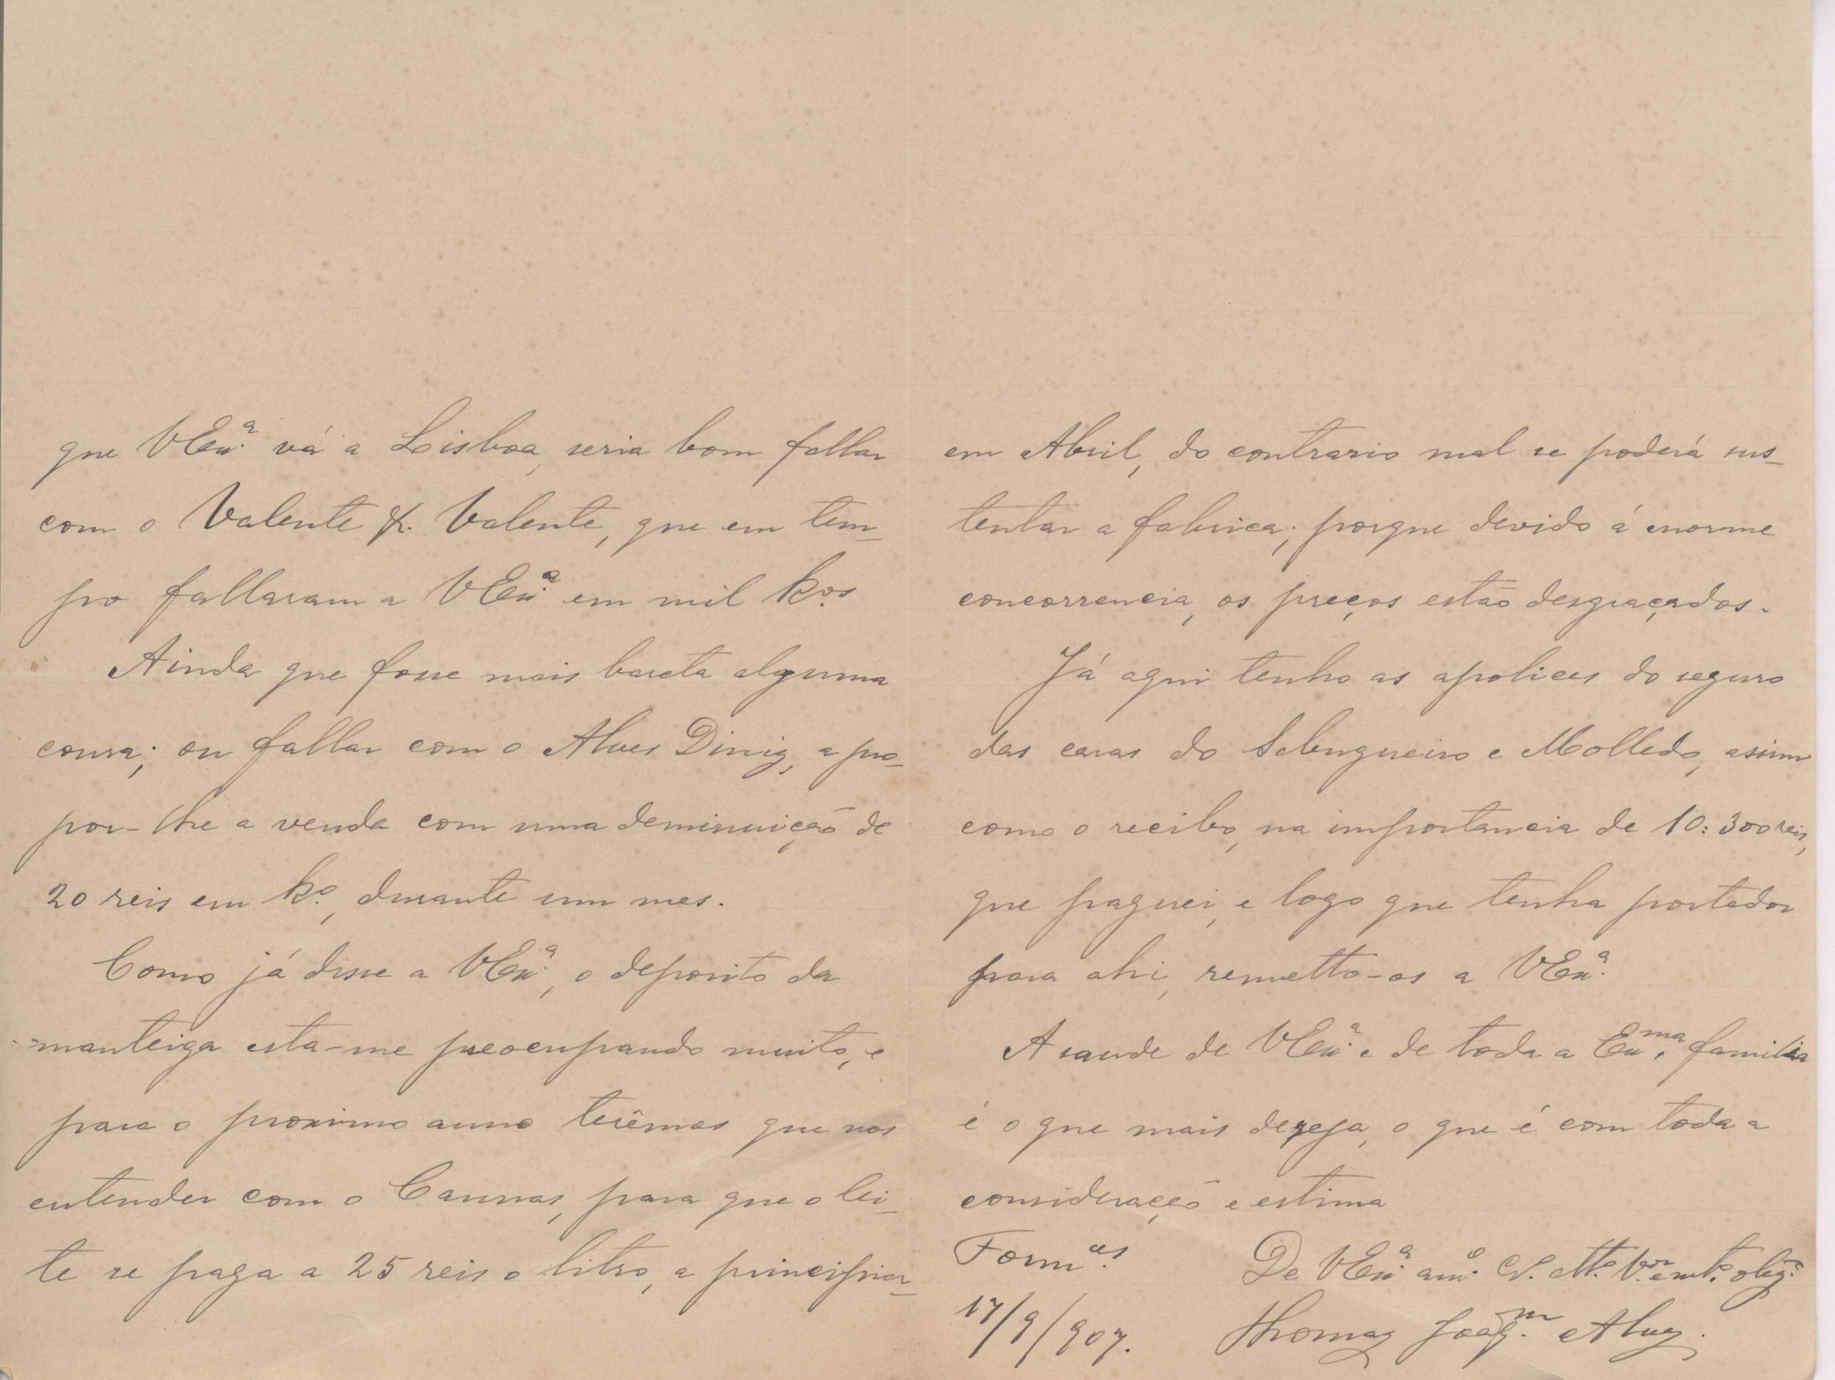 que VEx.ª vá a Lisboa, seria bom fallar
com o Valente &. Valente, que em tem-
po fallaram a VEx.ª em mil k.os
Ainda que fosse mais barata alguma
cousa; ou fallar com o Alves Diniz, a pro-
por-lhe a venda com uma deminuição de
20 reis em k.o, durante um mes.
Como já disse a VEx.ª, o deposito da
manteiga esta-me preocupando muito, e
para o proximo anno terêmos que nos
entender com o Cannas, para que o lei-
te se paga a 25 reis o litro, a principiar
em Abril, do contrario mal se poderá sus-
tentar a fabrica; porque devido á enorme
concorrencia, os preços estão desgraçados.
Já aqui tenho as apolices do seguro
das casas do Sabugueiro e Molledo, assim
como o recibo, na importancia de 10:300 reis,
que paguei, e logo que tenha portador
para ahi, remetto-os a VEx.ª
A saude de VEx.ª e de toda a Ex.ma familia
é o que mais dezeja, o que é com toda a
consideração e estima
Forn.os De VEx.ª am.o C.do Att.o V.or e m.to obg.o
17/9/907. Thomaz Joaq.m Alvz.